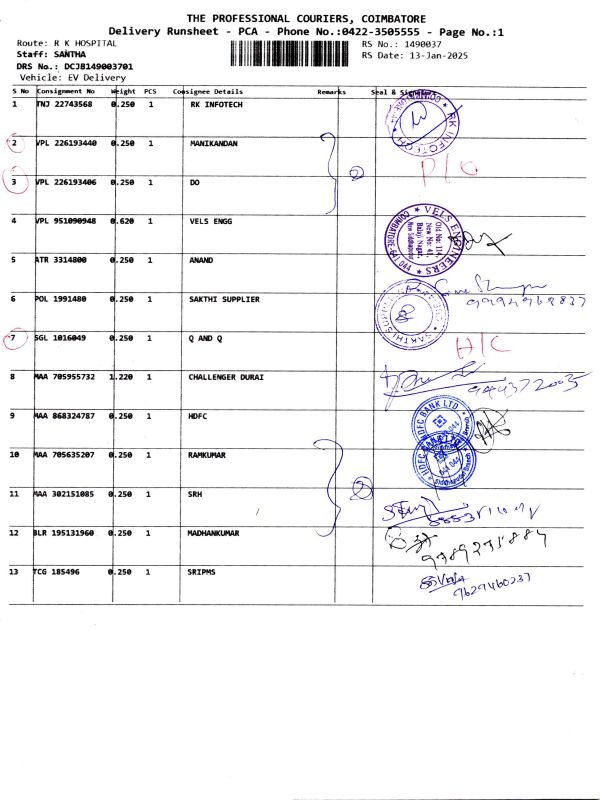 THE PROFESSIONAL COURIERS, COIMBATORE
Delivery Runsheet - PCA - Phone No.:0422-3505555 - Page No.:1
Route: R K HOSPITAL
RS No.: 1490037
Staff: SANTHA
RS Date: 13-Jan-2025
DRS No.: DCJB149003701
Vehicle: EV Delivery
S No Consignment No Weight PCS Consignee Details Remarks Seal & Signature
1 TNJ 22743568 0.250 1 RK INFOTECH
RK INFOTECH
2 VPL 226193440 0.250 1 MANIKANDAN
2
D/C
3 VPL 226193406 0.250 1 DO
4 VPL 951090948 0.620 1 VELS ENGG
VELS ENGINEERS
COIMBATORE-641 044
Old No: 114,
New No: 41,
Balaji Nagar,
5 ATR 3314800 0.250 1 ANAND
6 POL 1991480 0.250 1 SAKTHI SUPPLIER
7 SGL 1016049 0.250 1 Q AND Q
H/C
8 MAA 705955732 1.220 1 CHALLENGER DURAI
944372005
9 MAA 868324787 0.250 1 HDFC
HDFC BANK LTD
10 MAA 705635207 0.250 1 RAMKUMAR
11 MAA 302151085 0.250 1 SRH
2
12 BLR 195131960 0.250 1 MADHANKUMAR
13 TCG 185496 0.250 1 SRIPMS
9629460237